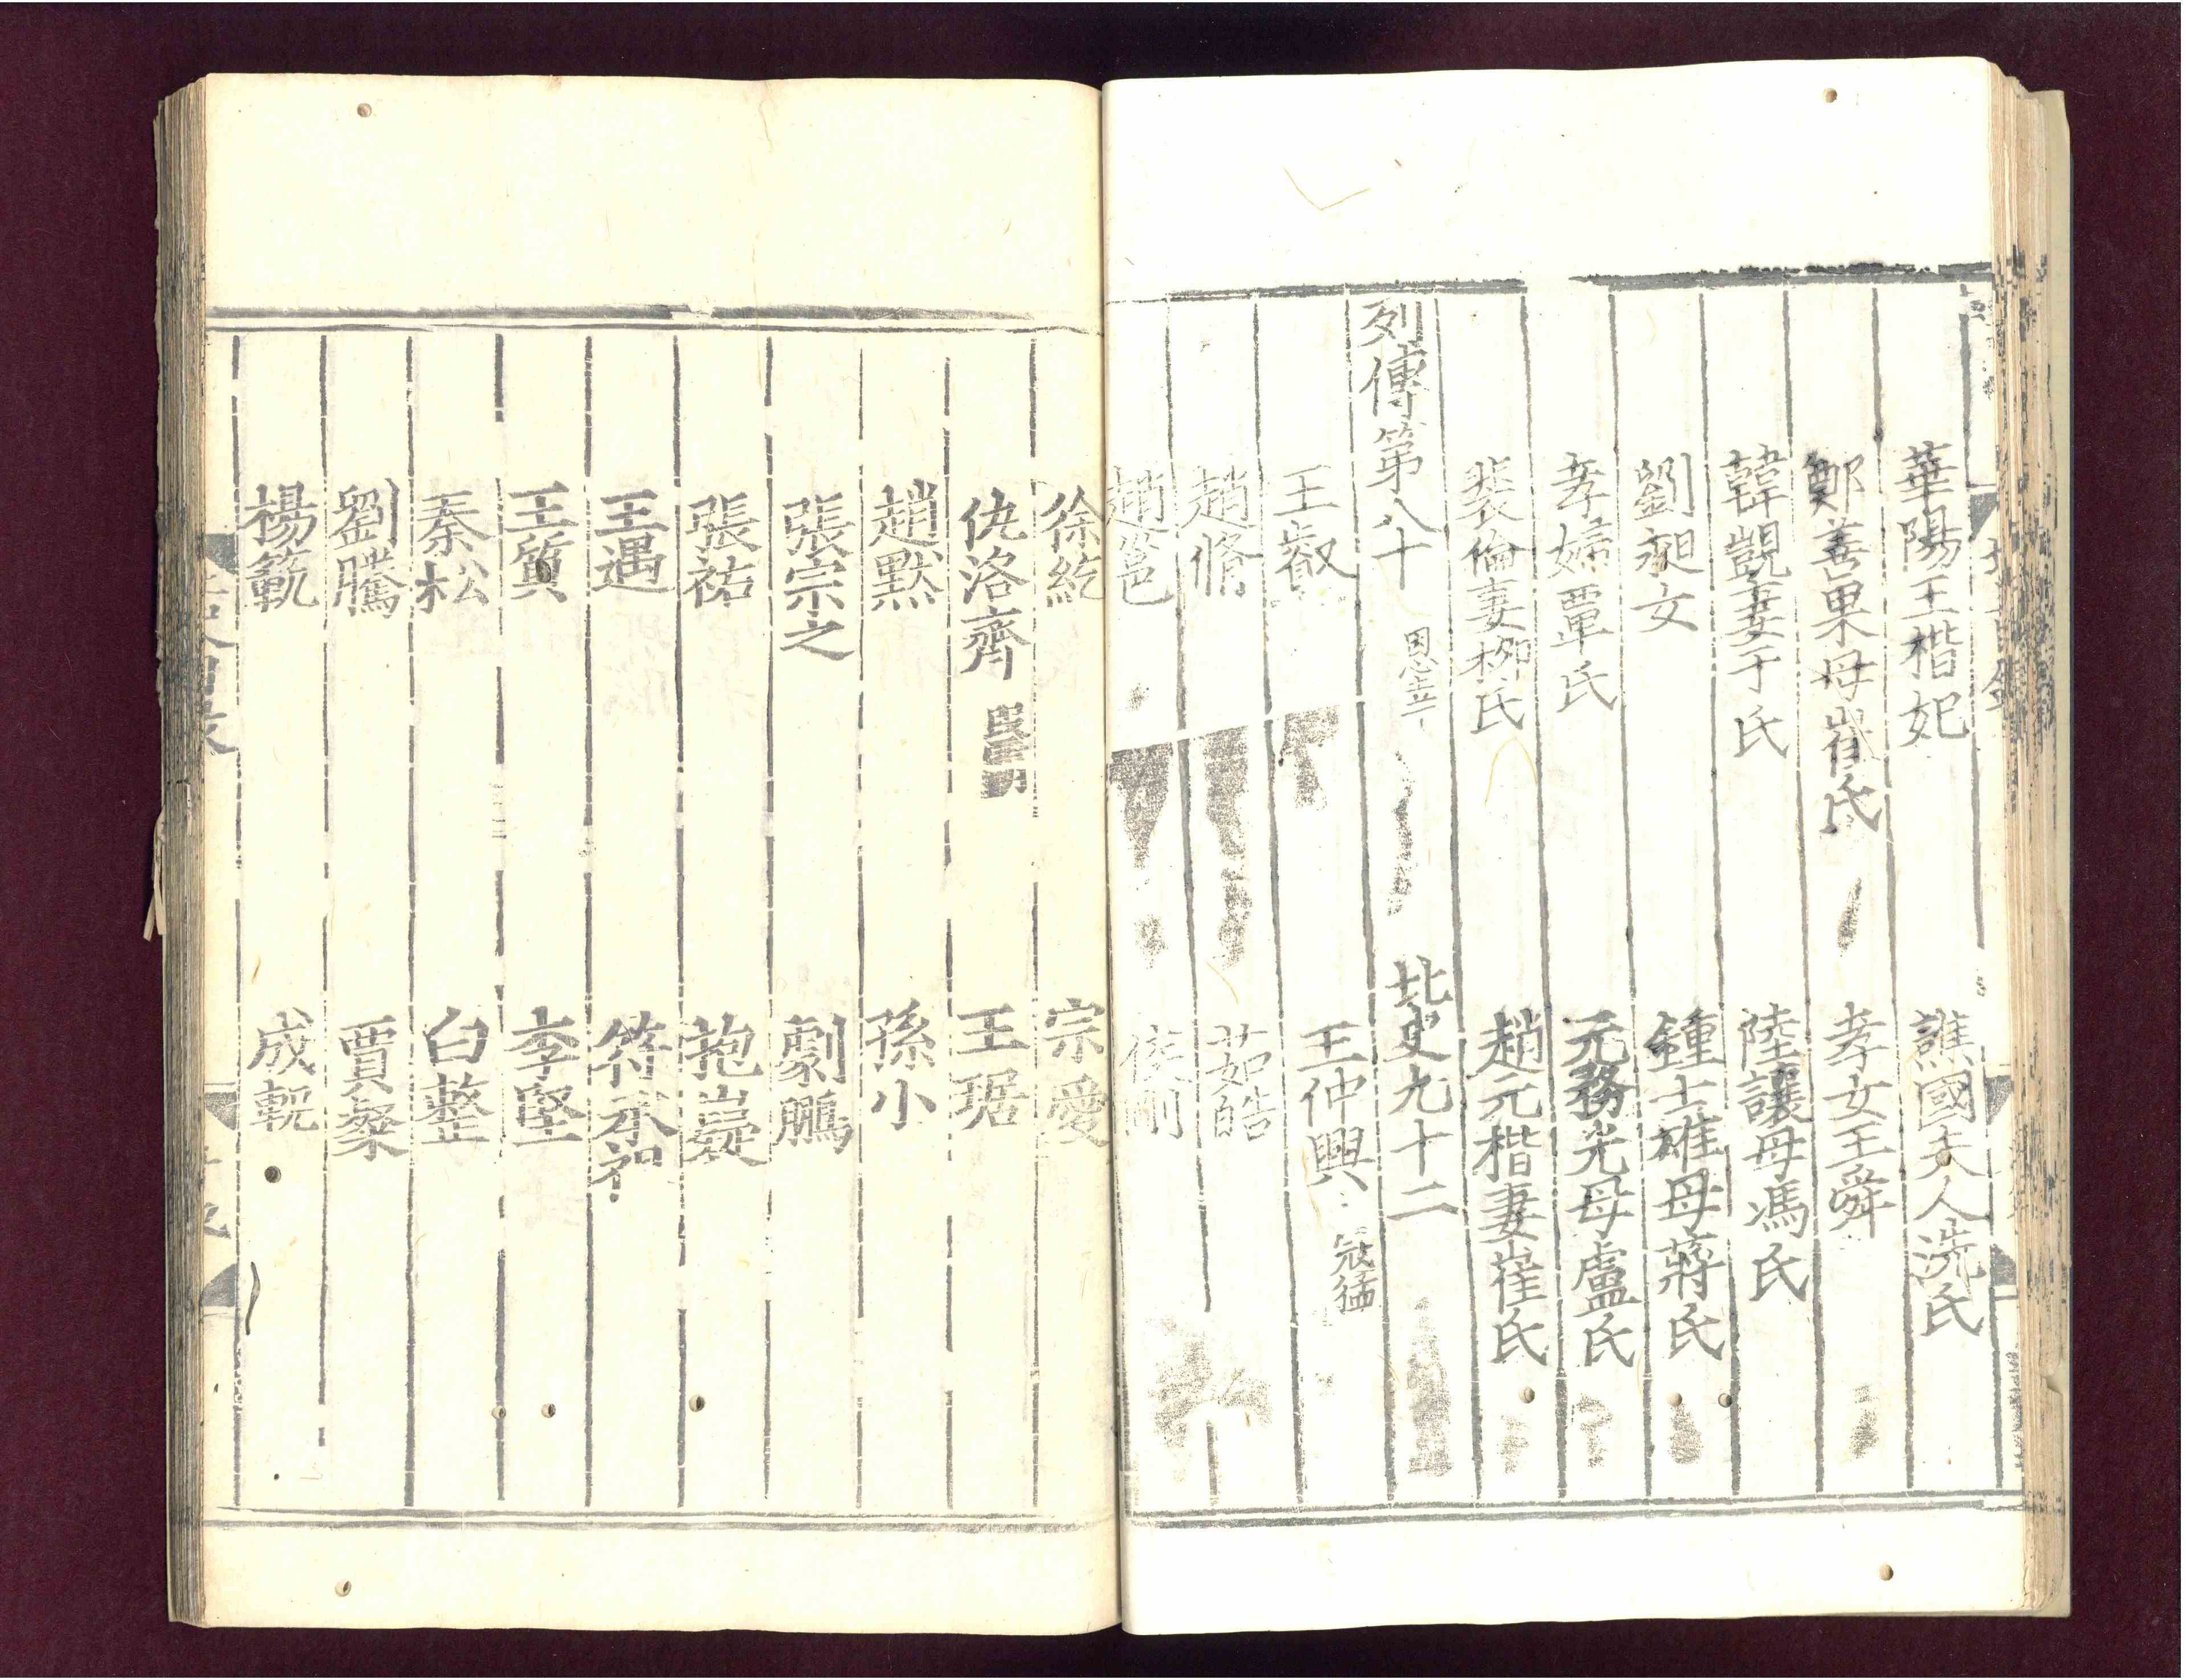 華陽王楷妃 譙國夫人洗氏
鄭善果母崔氏 孝女王舜
韓覬妻于氏 陸讓母馮氏
劉昶女 鍾士雄母蔣氏
孝婦覃氏 元務光母盧氏
裴倫妻柳氏 趙元楷妻崔氏
列傳第八十 恩幸 北史九十二
王叡 王仲興 寇猛
趙脩 茹皓
趙邕 侯剛
徐紇 宗愛
仇洛齊 王琚
趙黙 孫小
張宗之 劇鵬
張祐 抱嶷
王遇 符承祖
王質 李堅
秦松 白整
劉騰 賈粲
楊範 成軌